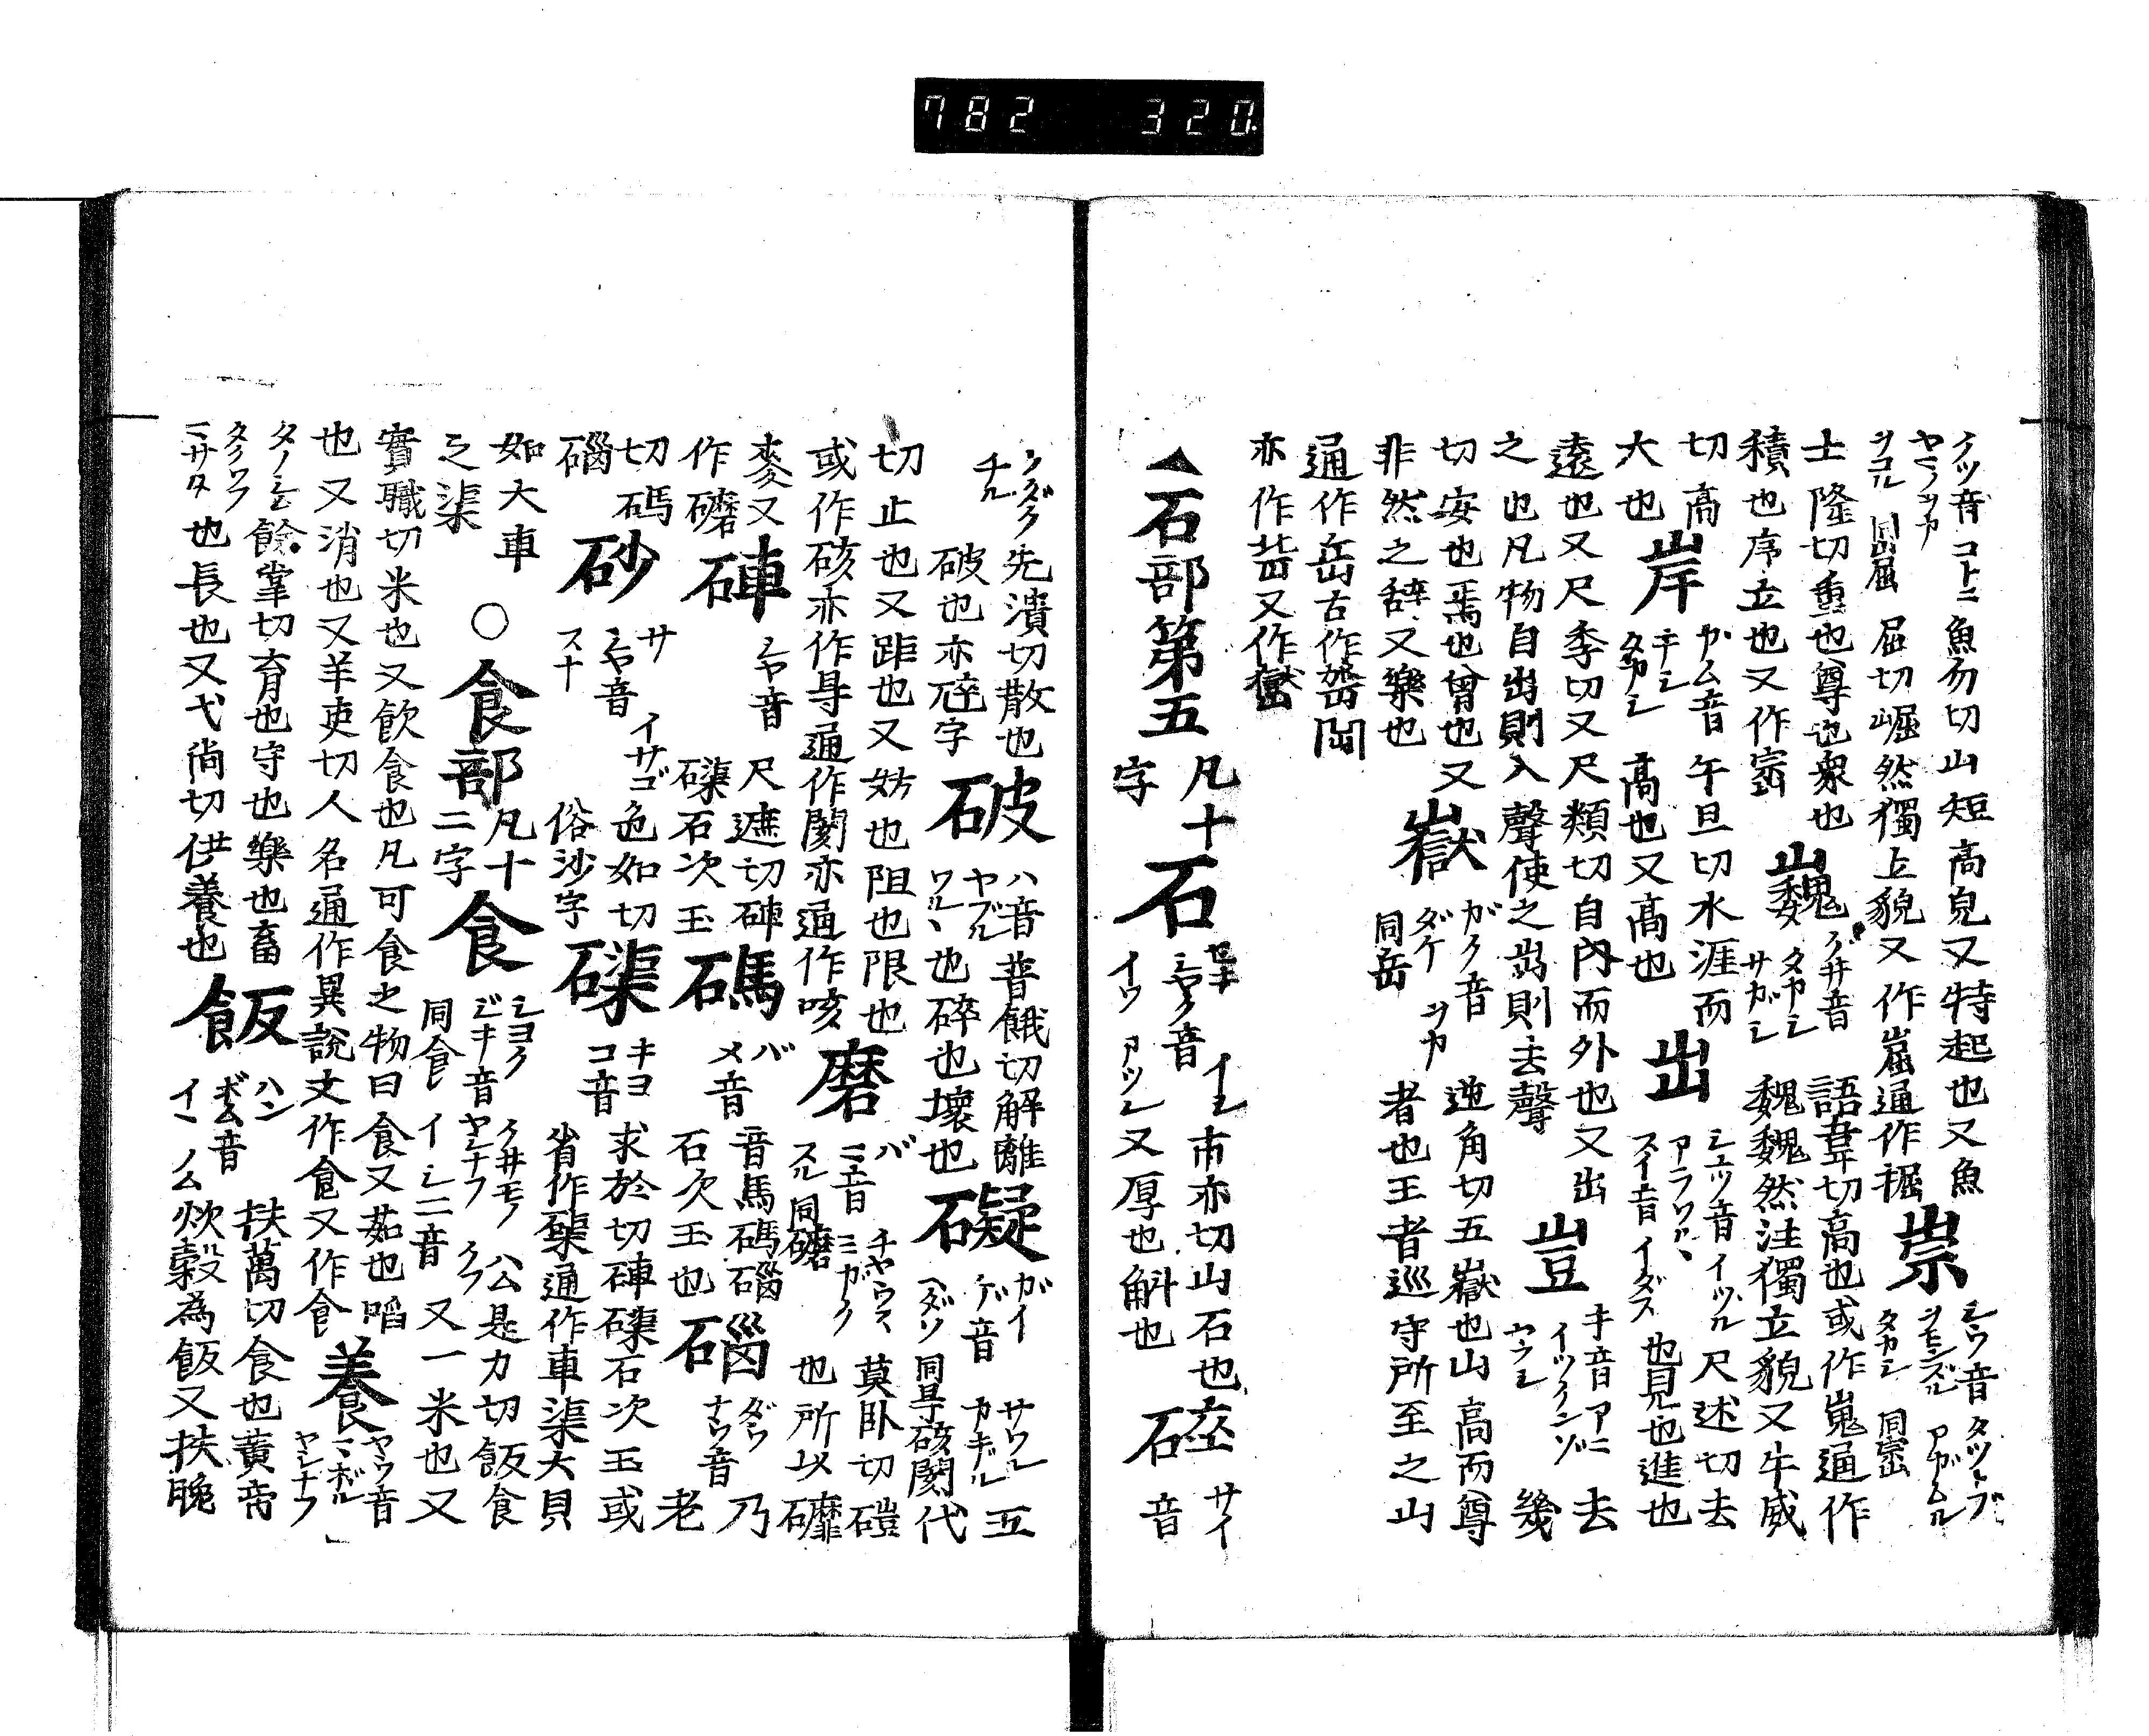 782 320.
音コトニ魚勿切山短高皃又特起也又魚
ヲコル同崛屈切崛然獨上貌又作崫通作掘崇シウ音タツトブタカシ同崈アガムル
士隆切重也尊也衆也巍タカシサカシ語韋切高也或作嵬通作
積也序立也又作崈巍巍然注獨立貌又牛威
切高岸ガム音キシタカシ午旦切水涯而出シユツ音イヅルアラワルスイ音イダス尺述切去
大也高也又高也也見也進也
遠也又尺季切又尺類切自內而外也又出豈キ音アニ去
之也凡物自出則入聲使之出則去聲幾
切安也焉也曾也又嶽ガク音ダケヲカ同岳逆角切五嶽也山高而尊
非然之辭又樂也者也王者巡守所至之山
通作岳古作
亦作又作
石部第五凡十字石セキシヤク音イシイワアツシ市亦切山石也又厚也斛也碎サイ音
クダクチル先潰切散也破ハ音ヤブルワル普餓切解離也碎也壞也礙ガイゲ音サワルカギルヘダツ同㝵硋閡五代
破也亦字
切止也又距也又妨也阻也限也磨バミ音スル同礳チヤウスミガク莫臥切磑
或作硋亦作㝵通作閡亦通作咳也所以礳
麥又作礳硨シヤ音尺遮切硨磲石次玉碼バメ音音馬碼碯石次玉也碯ダウナウ音乃老
切碼碯砂サシヤ音スナイサゴ色如切俗沙字磲キヨコ音求於切硨磲石次玉或省作磲通作車渠大貝
如大車之渠○食部凡十二字食シヨクジキ音同𩙿クラフイシ二音是力切飯食又一米也又
實職切米也又飲食也凡可食之物曰食又茹也啗
也又消也又羊吏切人名通作異說文作食又作食養ヤウ音ヤシナフ
タノシム餘掌切育也守也樂也畜飯ハンボム音扶萬切食也黃帝
也長也又弋尚切供養也炊穀為飯又扶晚